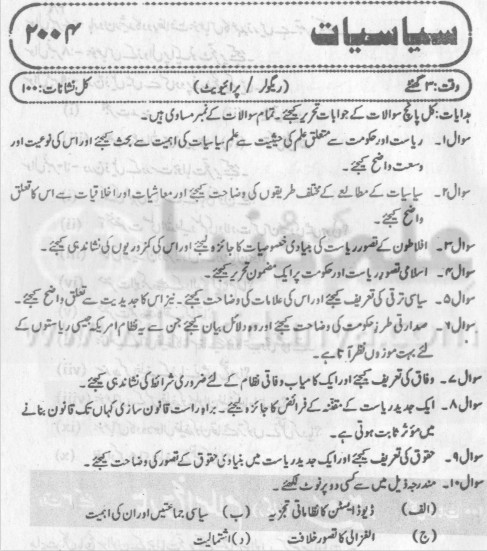 سیاسیات
۲۰۰۴
وقت: ۳ گھنٹے (ریگولر/پرائیویٹ) کل نشانات: ۱۰۰
ہدایات: کل پانچ سوالات کے جوابات تحریر کیجئے۔ تمام سوالات کے نمبر مساوی ہیں۔
سوال۱۔ ریاست اور حکومت سے متعلق علم کی حیثیت سے علم سیاسیات کی اہمیت سے بحث کیجئے اور اس کی نوعیت اور
وسعت واضح کیجئے۔
سوال۲۔ سیاسیات کے مطالعے کے مختلف طریقوں کی وضاحت کیجئے اور معاشیات اور اخلاقیات سے اس کا تعلق
واضح کیجئے۔
سوال۳۔ افلاطون کے تصور ریاست کی بنیادی خصوصیات کا جائزہ لیجئے اور اس کی کمزوریوں کی نشاندہی کیجئے۔
سوال۴۔ اسلامی تصور ریاست اور حکومت پر ایک مضمون تحریر کیجئے۔
سوال۵۔ سیاسی ترقی کی تعریف کیجئے اور اس کی علامات کی وضاحت کیجئے۔ نیز اس کا جدیدیت سے تعلق واضح کیجئے۔
سوال۶۔ صدارتی طرز حکومت کی وضاحت کیجئے اور وہ دلائل بیان کیجئے جن سے یہ نظام امریکہ جیسی ریاستوں کے
لئے بہت موزوں نظر آتا ہے۔
سوال۷۔ وفاق کی تعریف کیجئے اور ایک کامیاب وفاقی نظام کے لئے ضروری شرائط کی نشاندہی کیجئے۔
سوال۸۔ ایک جدید ریاست کے مقننہ کے فرائض کا جائزہ لیجئے۔ براہ راست قانون سازی کہاں تک قانون بنانے
میں مؤثر ثابت ہوتی ہے۔
سوال۹۔ حقوق کی تعریف کیجئے اور ایک جدید ریاست میں بنیادی حقوق کے تصور کی وضاحت کیجئے۔
سوال۱۰۔ مندرجہ ذیل میں سے کسی دو پر نوٹ لکھئے۔
(الف) ڈیوڈ ایسٹن کا نظاماتی تجزیہ (ب) سیاسی جماعتیں اور ان کی اہمیت
(ج) الغزالی کا تصور خلافت (د) اشتمالیت